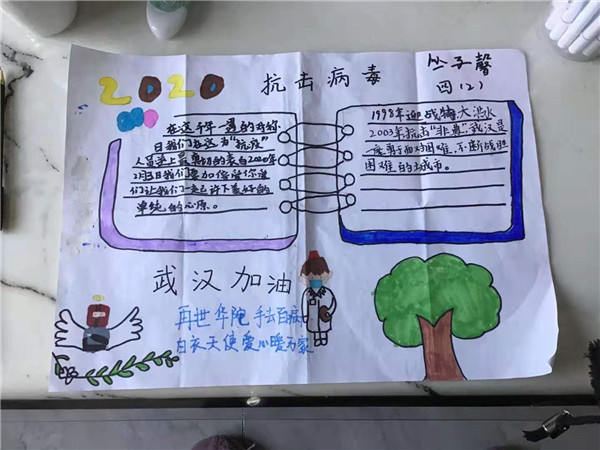 2020
抗击病毒
丛子馨
四(2)
在这千年一遇的对称
日我们在这为“抗疫”
人员送上最真切的表白2020年
2月3日我们要加倍爱你
们让我们一起许下最好的
单纯的心愿。
1998年迎战特大洪水
2003年抗击“非典”武汉是
一座勇于面对困难,不断战胜
困难的城市。
武汉加油
再世华陀手去百病
白衣天使爱心暖万家